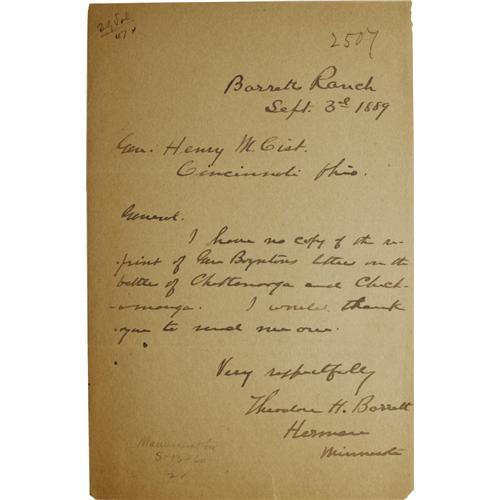 2507
Barretts Ranch
Sept. 3d 1889
Gen. Henry M. Cist.
Cincinnati Ohio.
General.
I have no copy of the re-
-print of Gen Boyntons letter on the
battles of Chattanooga and Chick-
-amauga. I would thank
you to send me one.
Very respectfully
Theodore H. Barrett
Herman
Minnesota